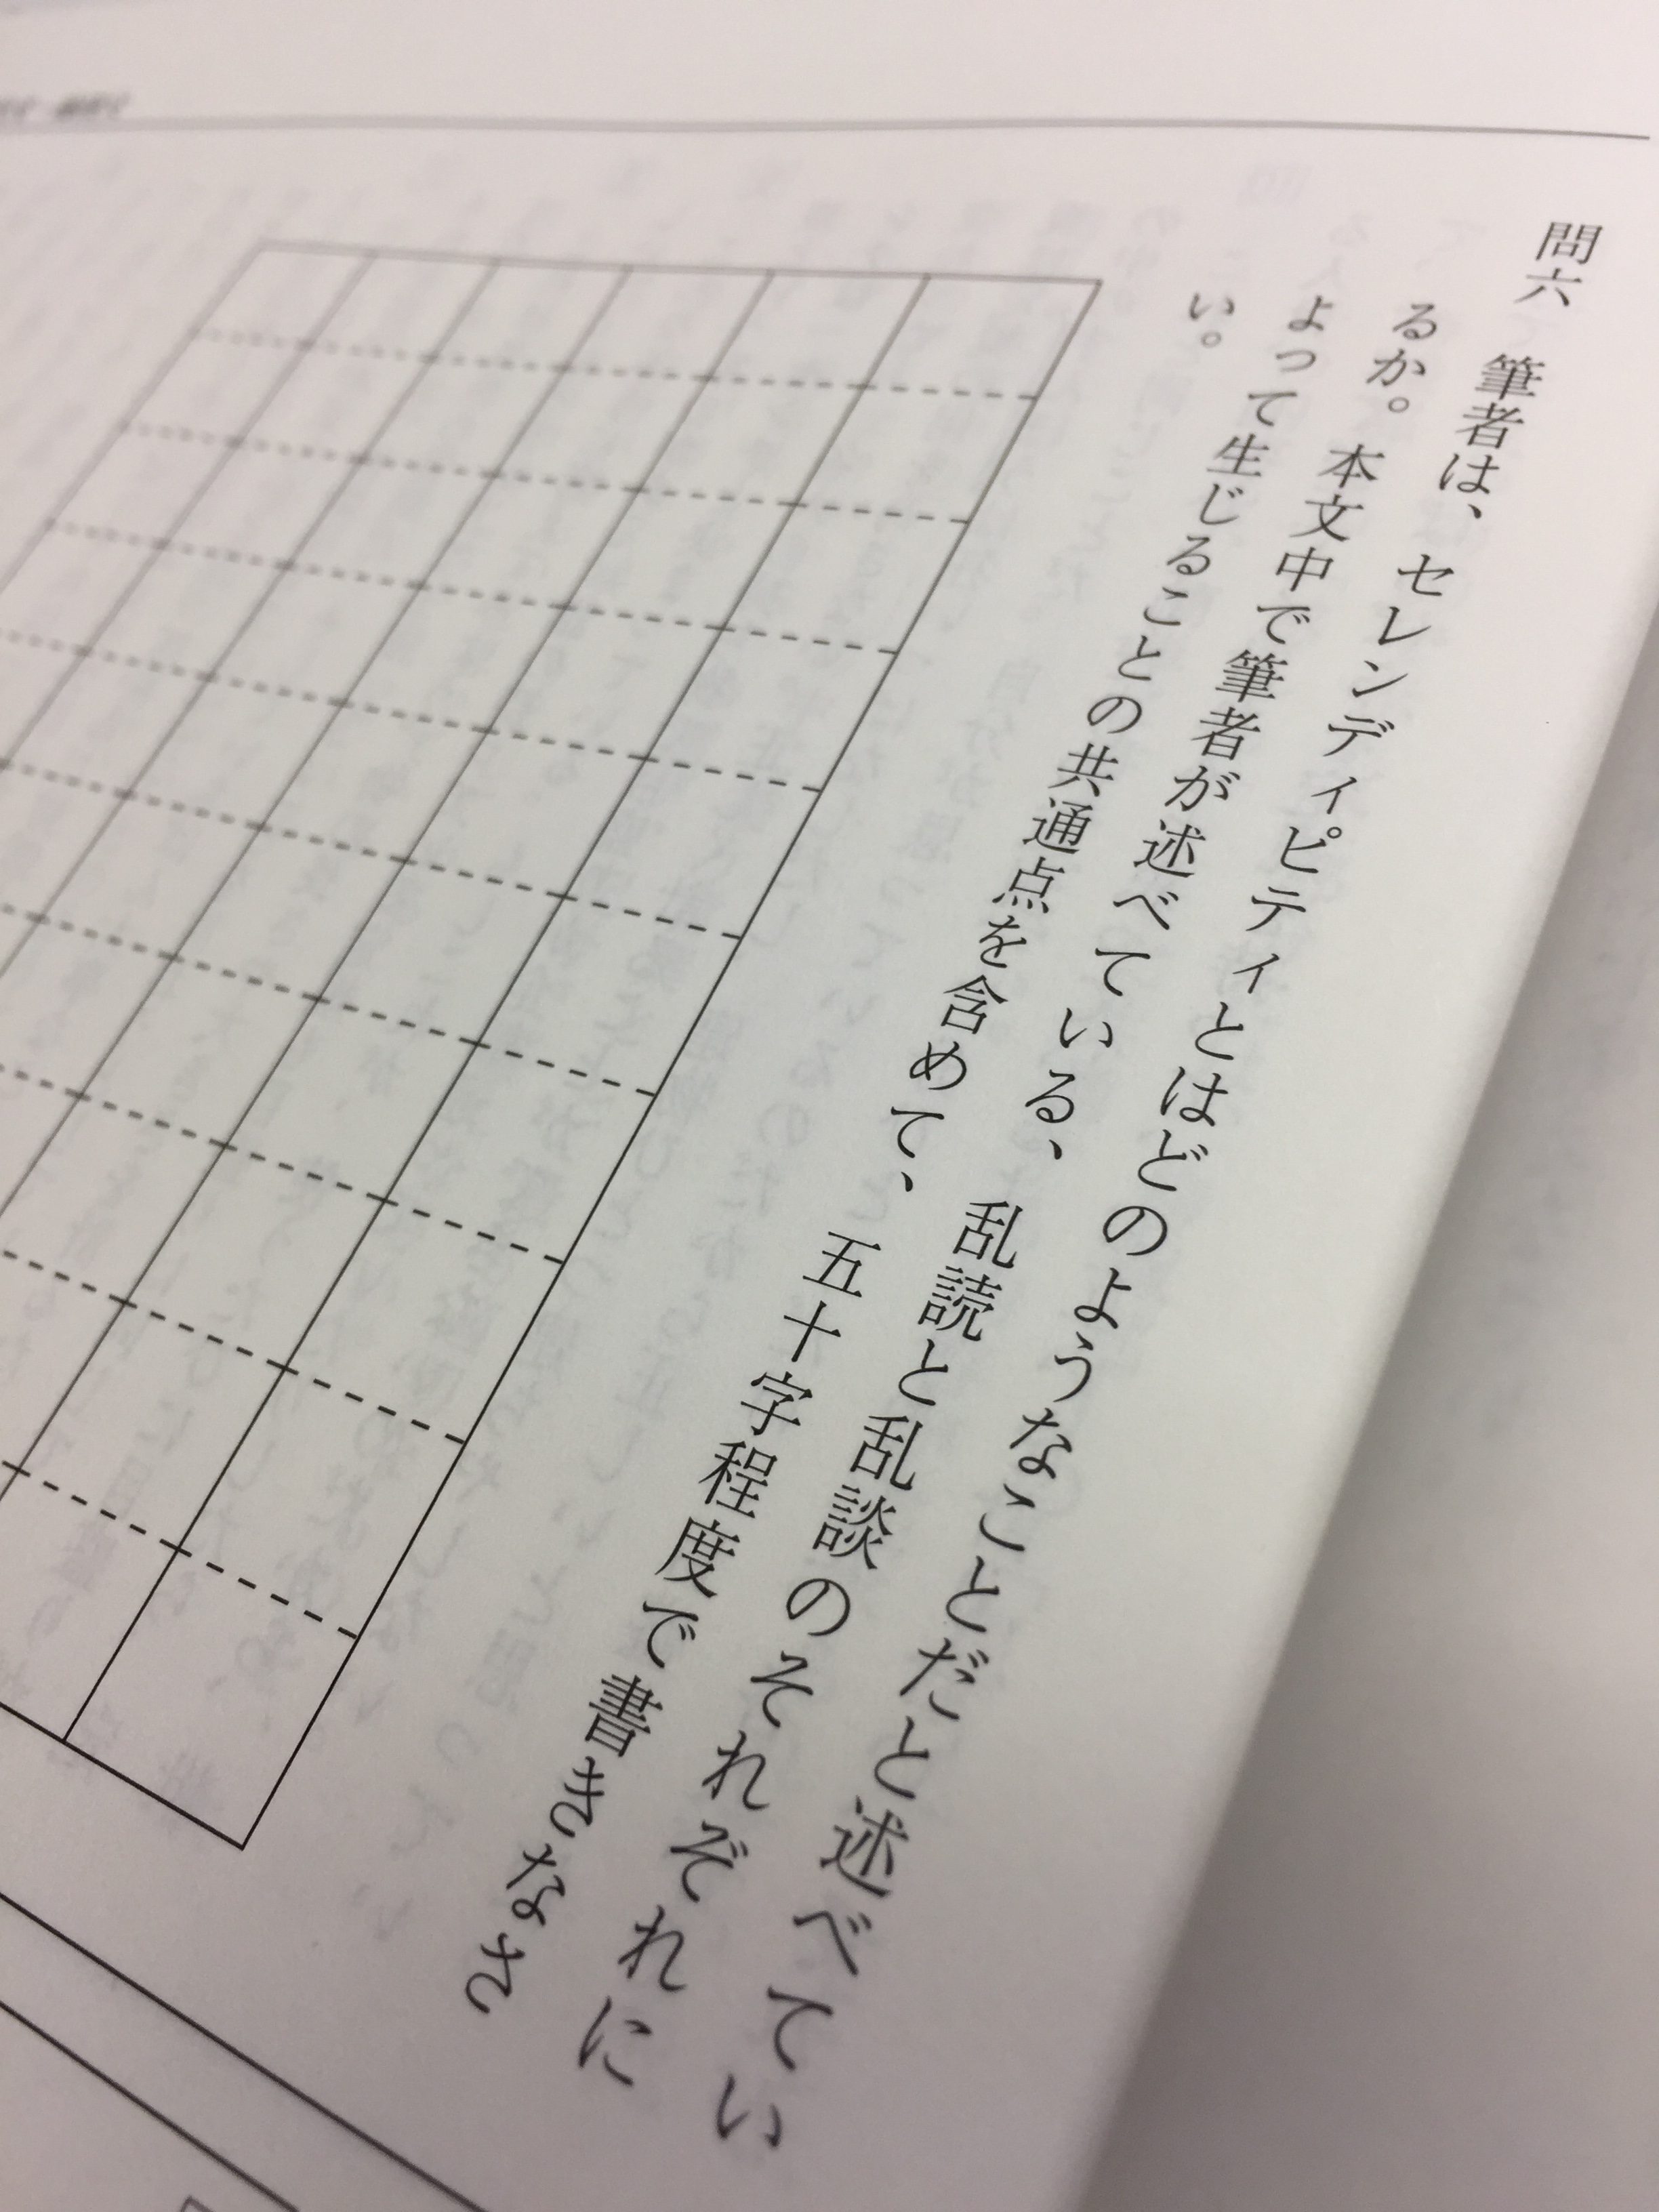 問六　筆者は、セレンディピティとはどのようなことだと述べてい
るか。本文中で筆者が述べている、乱読と乱談のそれぞれに
よって生じることの共通点を含めて、五十字程度で書きなさ
い。